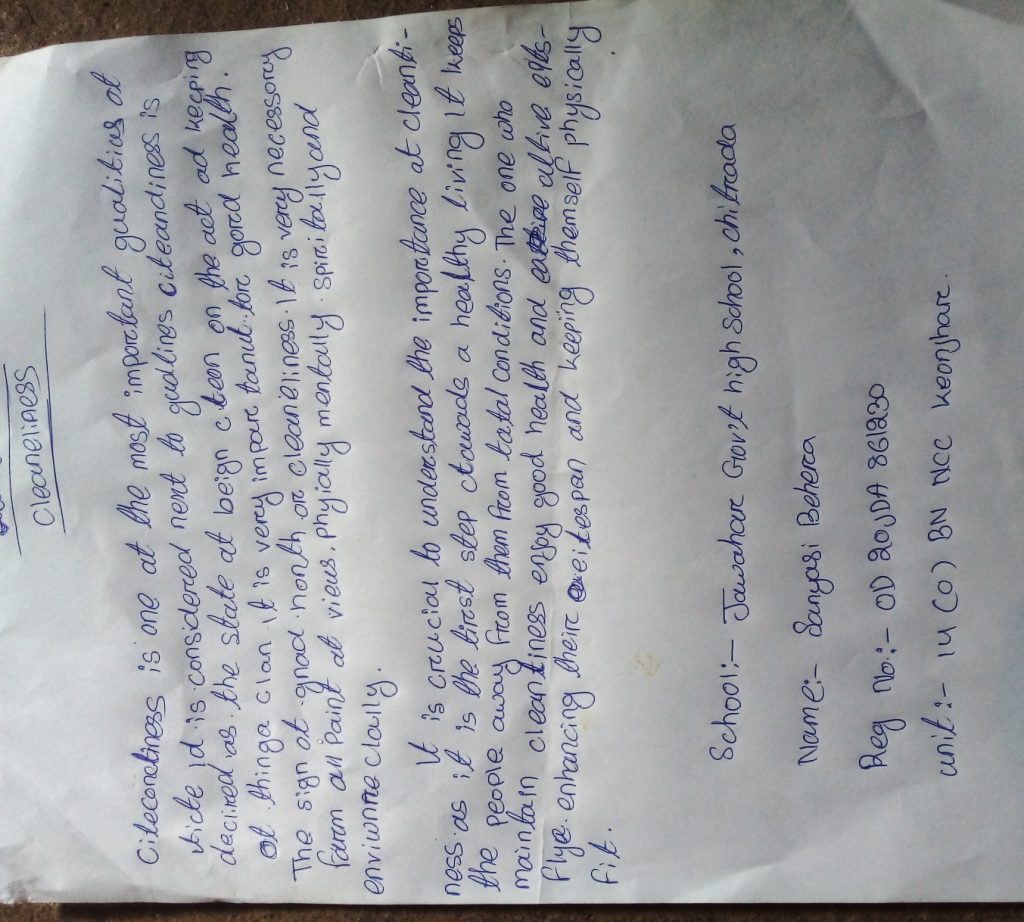 Cleaneliness
Citecondiness is one at the most important gualitius at
victe id is considered next to godlines citeandiness is
decired as the state at beign cteen on the act ad keeping
ot thinga clan it is very inparc tanut torc good health.
The sign at gnad nonth orc cleaneliness. It is very necessorcy
farom an Paint at views. Phyially mentally spirc itally and
enviwnre clally.
It is crucial to understand the imporctance at cleanti-
ness as it is the tircst step ctowads a healthy living it keeps
the people away From them From tatal conditions. The one who
maintain cleantiness enjoy good health and altive elbs-
flye enhancing theirc eitespan and keeping themself physically
Fit.
School:- Jawaharc Govrt high School, chitrada
Name:- Sanyasi Beherca
Reg No:- OD 20JDA 861230
unit:- 14 (O) BN NCC Keonjharc.